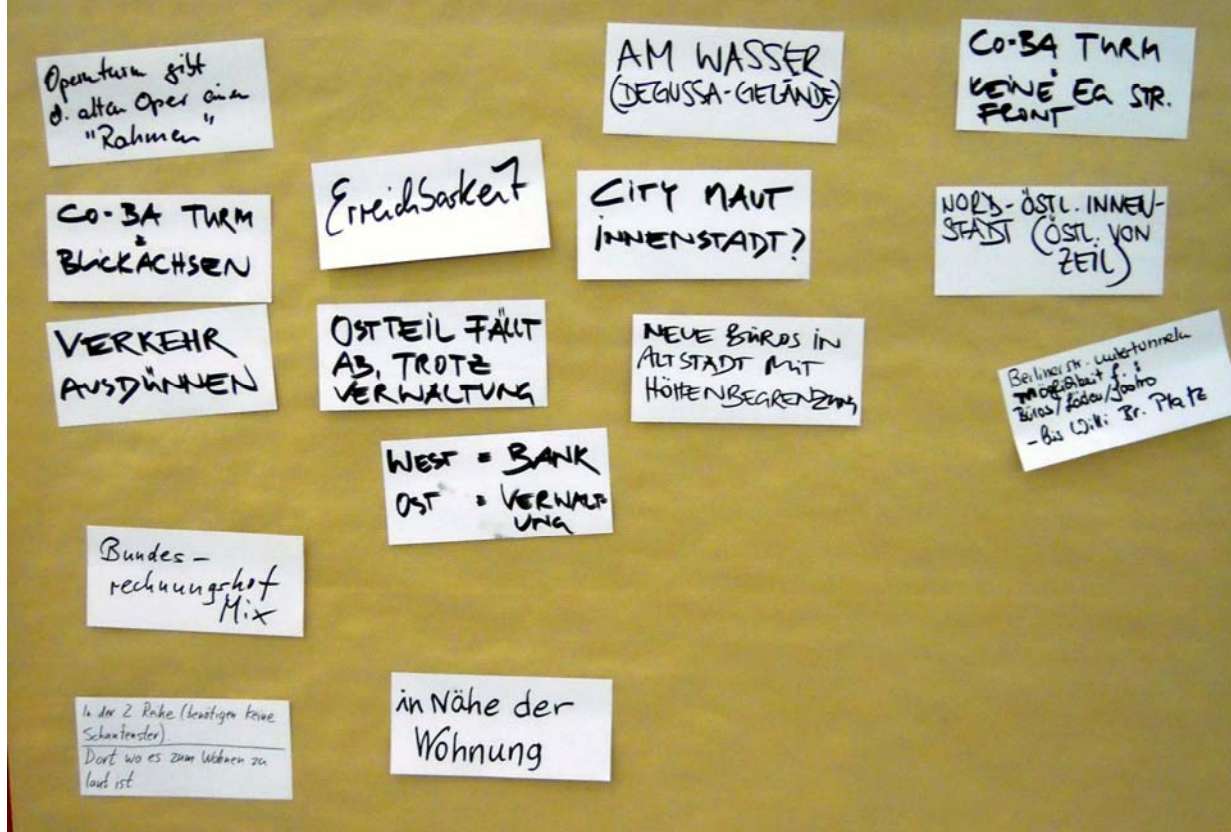 Opernturm gibt
d. alten Oper einen
"Rahmen"
CO-BA TURM
BLICKACHSEN
VERKEHR
AUSDÜNNEN
Bundes-
rechnungshof
Mix
In der 2. Reihe (benötigen keine
Schaufenster).
Dort wo es zum Wohnen zu
laut ist
Erreichbarkeit
OSTTEIL FÄLLT
AB, TROTZ
VERWALTUNG
WEST = BANK
OST = VERWALT-
UNG
in Nähe der
Wohnung
AM WASSER
(DEGUSSA-GELÄNDE)
CITY MAUT
INNENSTADT?
NEUE BÜROS IN
ALTSTADT MIT
HÖHENBEGRENZUNG
CO-BA TURM
KEINE EG STR.
FRONT
NORD-ÖSTL. INNEN-
STADT (ÖSTL. VON
ZEIL)
Berliner Str. untertunneln
Möglichkeit f.
Büros/Läden/Gastro
- Bis Willi Br. Platz